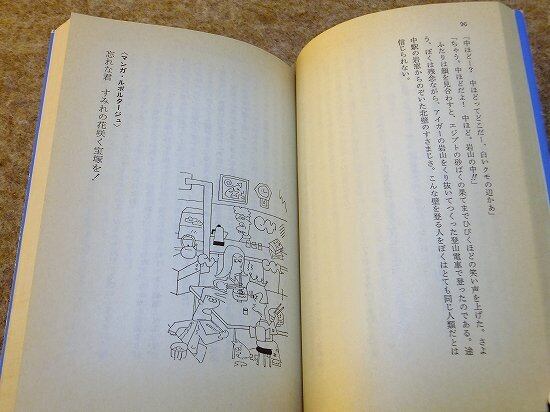 96
「中ほどー？　中ほどってどこだー、白いクモの辺かぁ」
「ちゃう。中ほどだよ！　中ほど。岩山の中!!」
ふたりは顔を見合わすと、エジプトの砂ばくの果てまでひびくほどの笑い声を上げた。さよ
う、ぼくは残念ながら、アイガーの岩山をくり抜いてつくった登山電車で登ったのである。途
中駅の岩窓からのぞいた北壁のすさまじさ。こんな壁を登る人をぼくはとても同じ人類だとは
信じられない。
〈マンガ・ルポルタージュ〉
忘れな君　すみれの花咲く宝塚を！